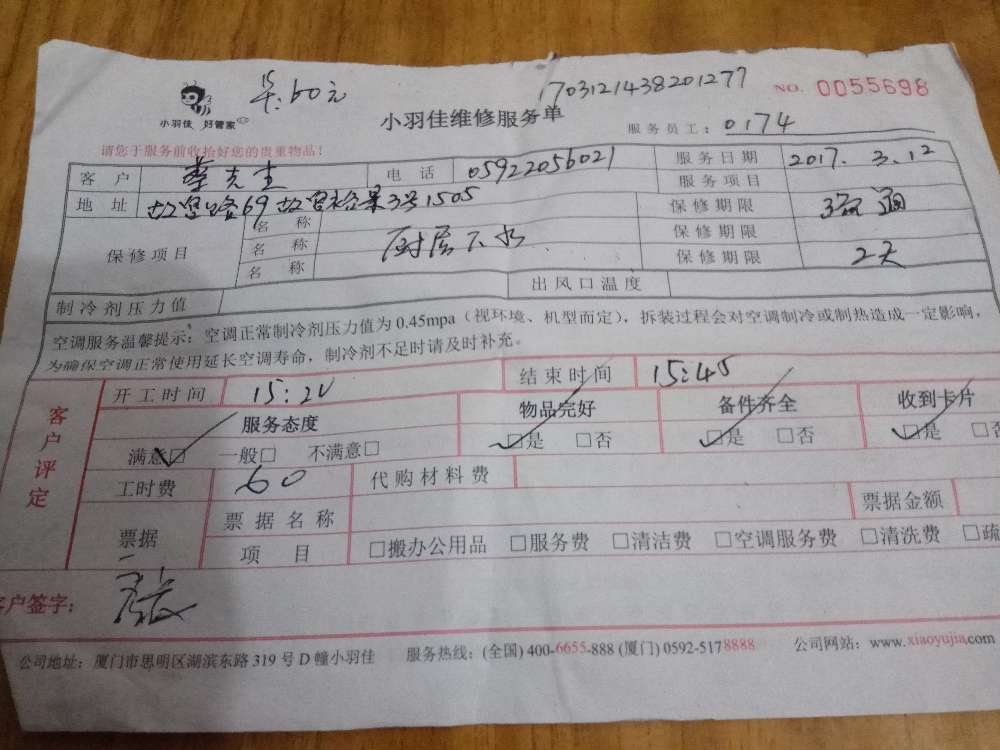 60元
1703121438201277
NO. 0055698
小羽佳 好管家
小羽佳维修服务单
服务员工: 0174
请您于服务前收拾好您的贵重物品!
客 户 蔡先生 电 话 05922056021 服务日期 2017. 3.12
服务项目
地 址 69 3号1505 保修期限 疏通
保修项目 名 称 保修期限
名 称 厨房下水 保修期限 2天
名 称
制冷剂压力值 出风口温度
空调服务温馨提示: 空调正常制冷剂压力值为 0.45mpa (视环境、机型而定), 拆装过程会对空调制冷或制热造成一定影响,
为确保空调正常使用延长空调寿命, 制冷剂不足时请及时补充。
客户评定
开工时间 15:20 结束时间 15:45
服务态度 物品完好 备件齐全 收到卡片
满意□ 一般□ 不满意□ □是 □否 □是 □否 □是 □否
工时费 60 代购材料费
票据 票据名称 票据金额
项 目 □搬办公用品 □服务费 □清洁费 □空调服务费 □清洗费 □疏
客户签字:
公司地址: 厦门市思明区湖滨东路 319 号 D 幢小羽佳 服务热线: (全国) 400-6655-888 (厦门) 0592-5178888 公司网站: www.xiaoyujia.com